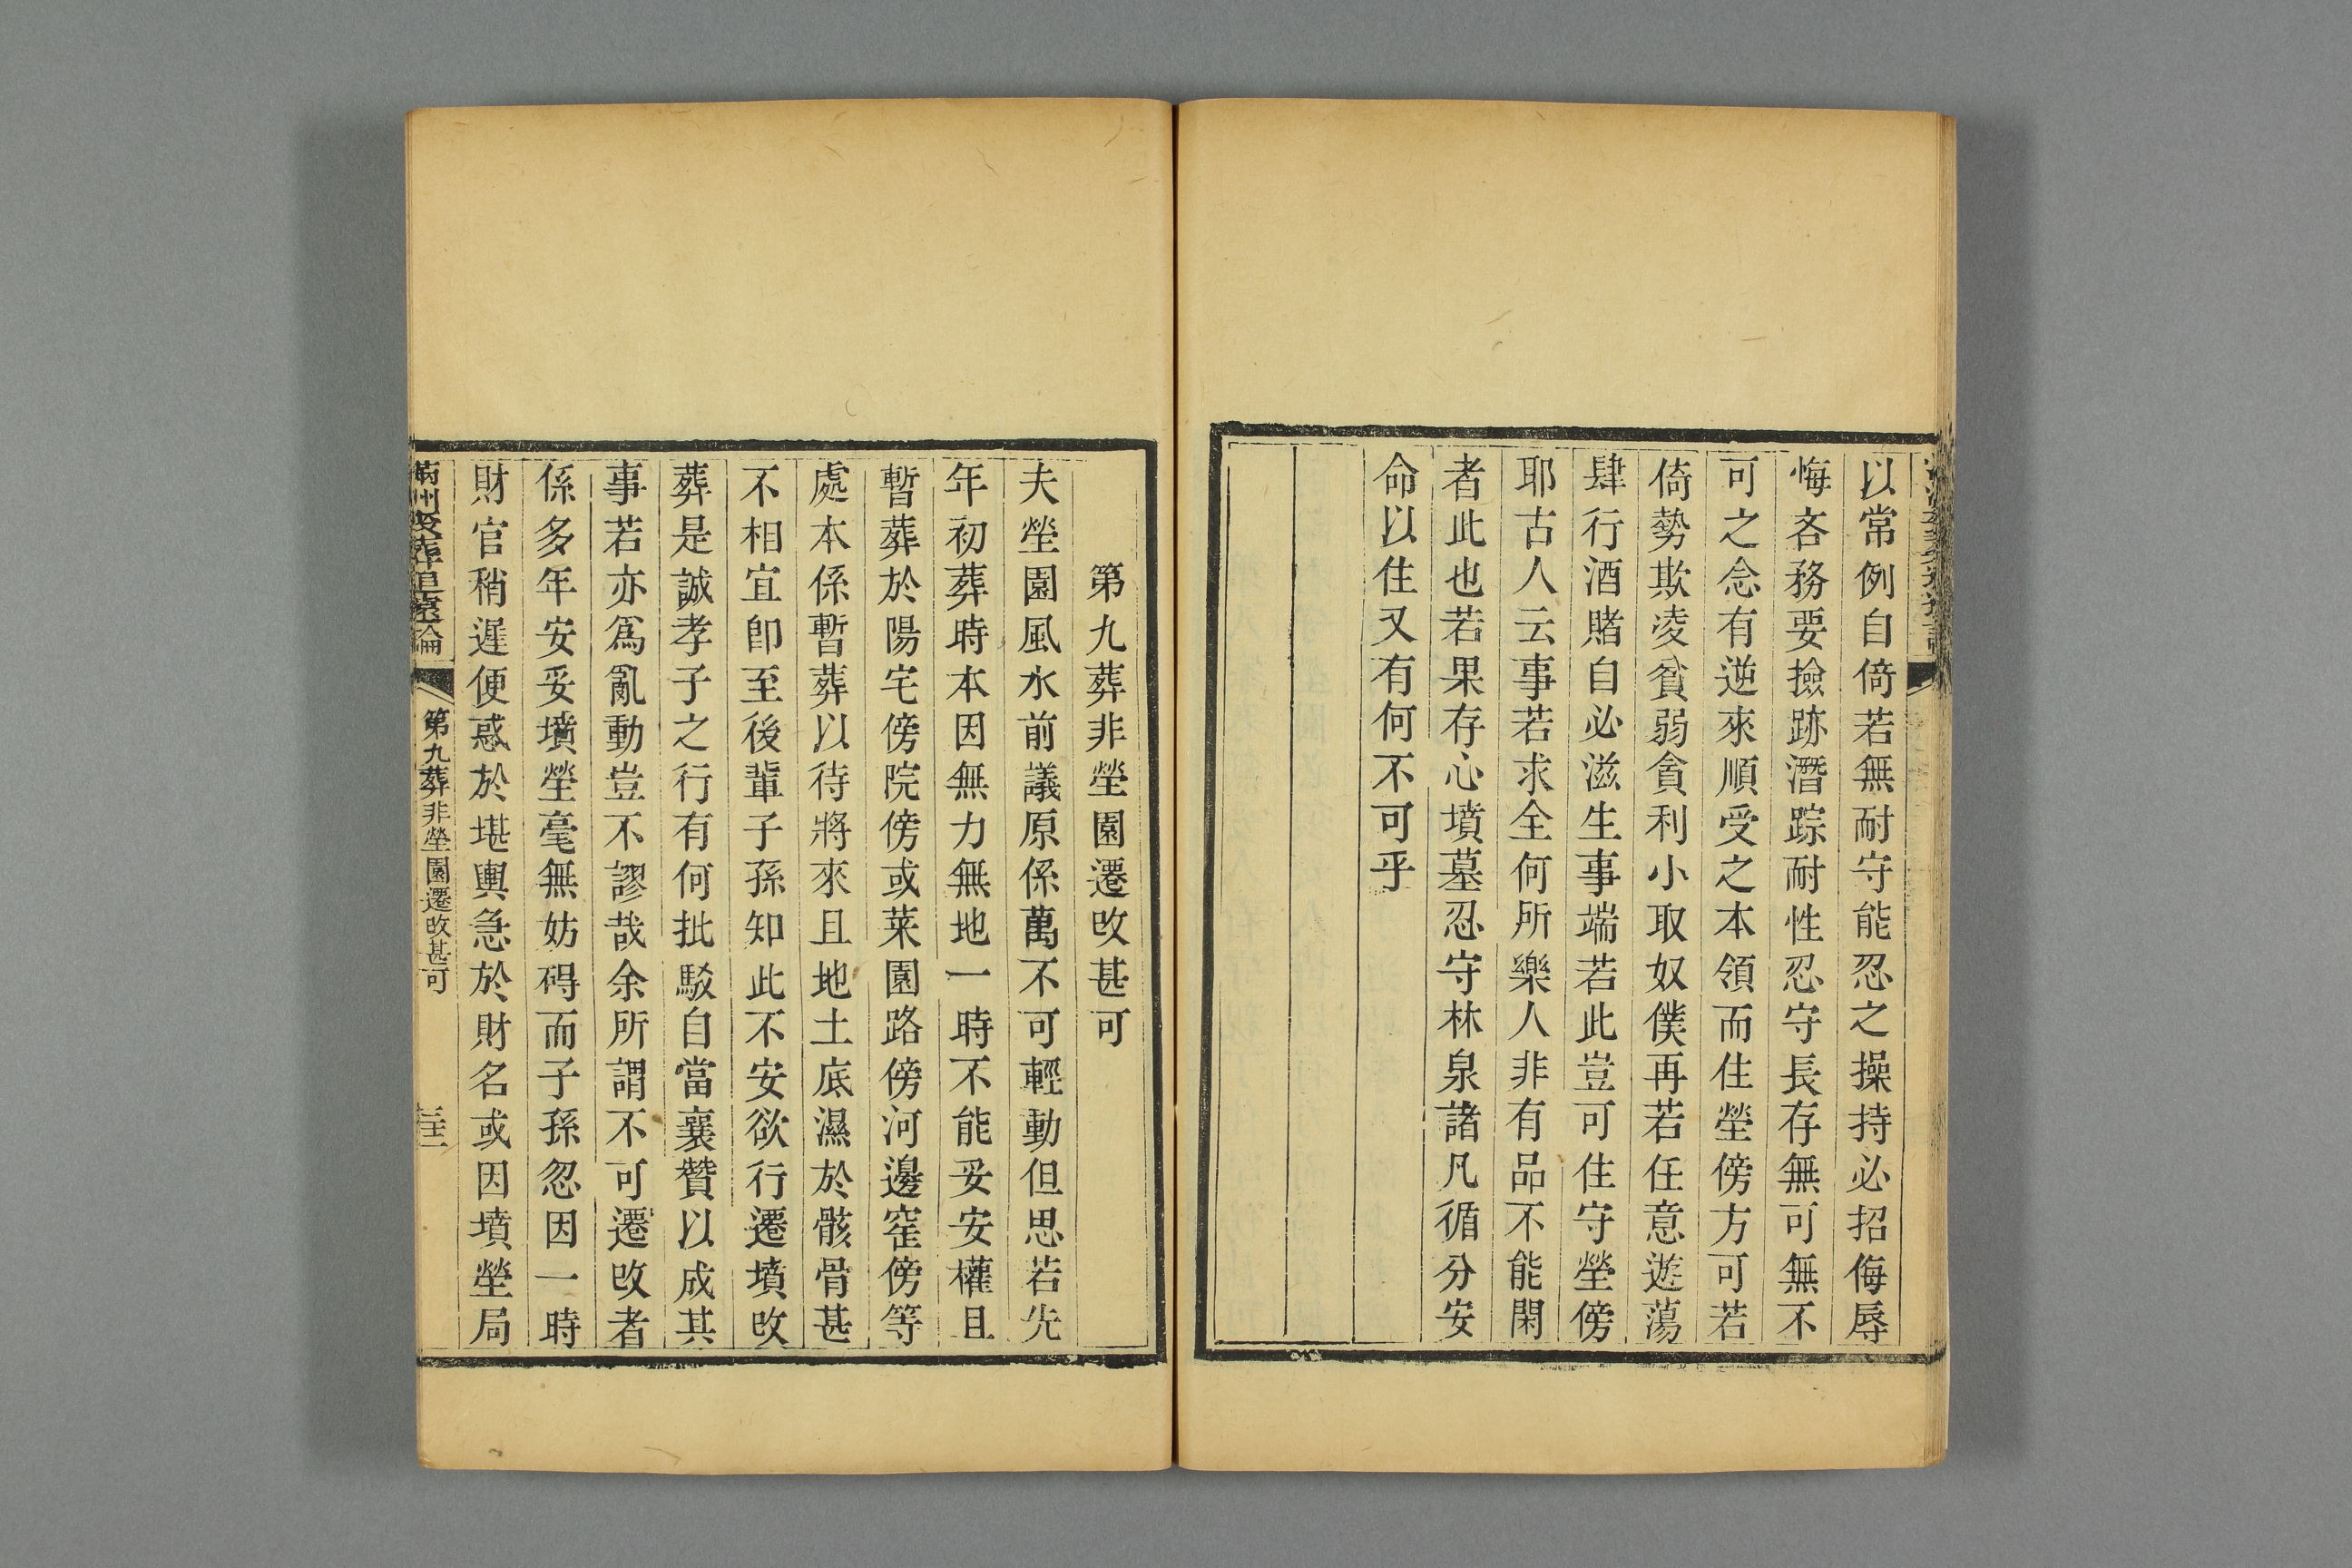 以常例自倚若無耐守能忍之操持必招侮辱
悔吝務要撿跡潛踪耐性忍守長存無可無不
可之念有逆來順受之本領而住塋傍方可若
倚勢欺凌貧弱貪利小取奴僕再若任意遊蕩
肆行酒賭自必滋生事端若此豈可住守塋傍
耶古人云事若求全何所樂人非有品不能閑
者此也若果存心墳墓忍守林泉諸凡循分安
命以住又有何不可乎
第九葬非塋園遷改甚可
夫塋園風水前議原係萬不可輕動但思若先
年初葬時本因無力無地一時不能妥安權且
暫葬於陽宅傍院傍或菜園路傍河邊窑傍等
處本係暫葬以待將來且地土底濕於骸骨甚
不相宜卽至後輩子孫知此不安欲行遷墳改
葬是誠孝子之行有何批駁自當襄贊以成其
事若亦爲亂動豈不謬哉余所謂不可遷改者
係多年安妥墳塋毫無妨碍而子孫忽因一時
財官稍遲便惑於堪輿急於財名或因墳塋局
葬追遠論
第九葬非塋園遷改甚可